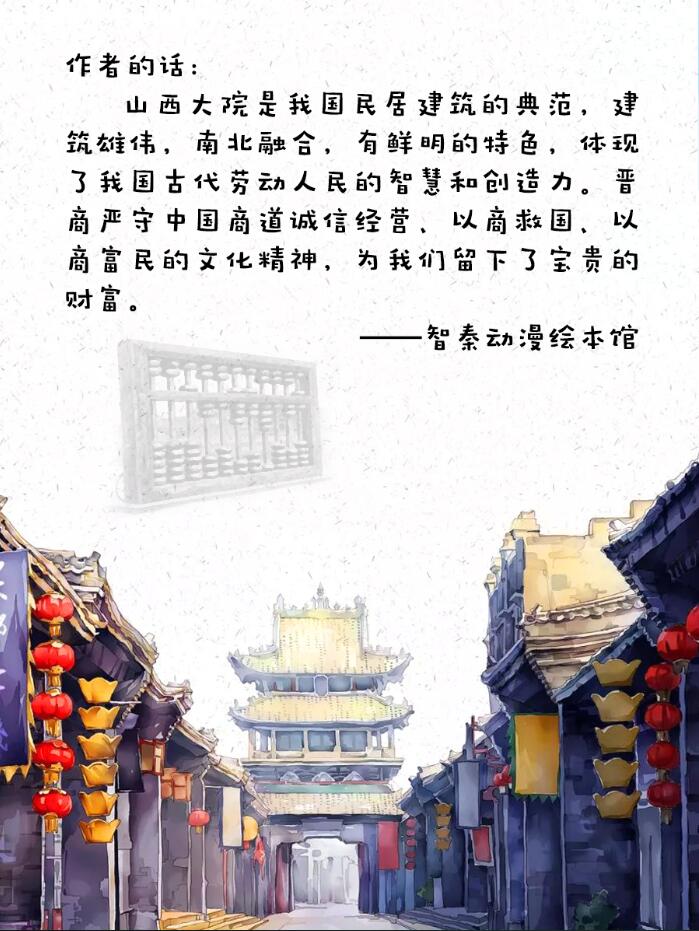 作者的话：
山西大院是我国民居建筑的典范，建
筑雄伟，南北融合，有鲜明的特色，体现
了我国古代劳动人民的智慧和创造力。晋
商严守中国商道诚信经营、以商救国、以
商富民的文化精神，为我们留下了宝贵的
财富。
——智秦动漫绘本馆